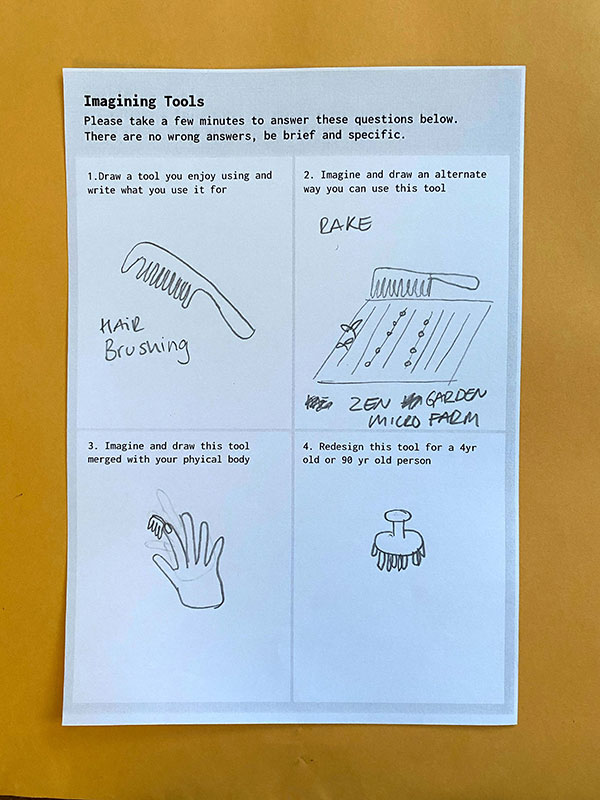 Imagining Tools
Please take a few minutes to answer these questions below.
There are no wrong answers, be brief and specific.
1.Draw a tool you enjoy using and
write what you use it for
HAIR
Brushing
2. Imagine and draw an alternate
way you can use this tool
RAKE
ZEN GARDEN
MICRO FARM
3. Imagine and draw this tool
merged with your phyical body
4. Redesign this tool for a 4yr
old or 90 yr old person